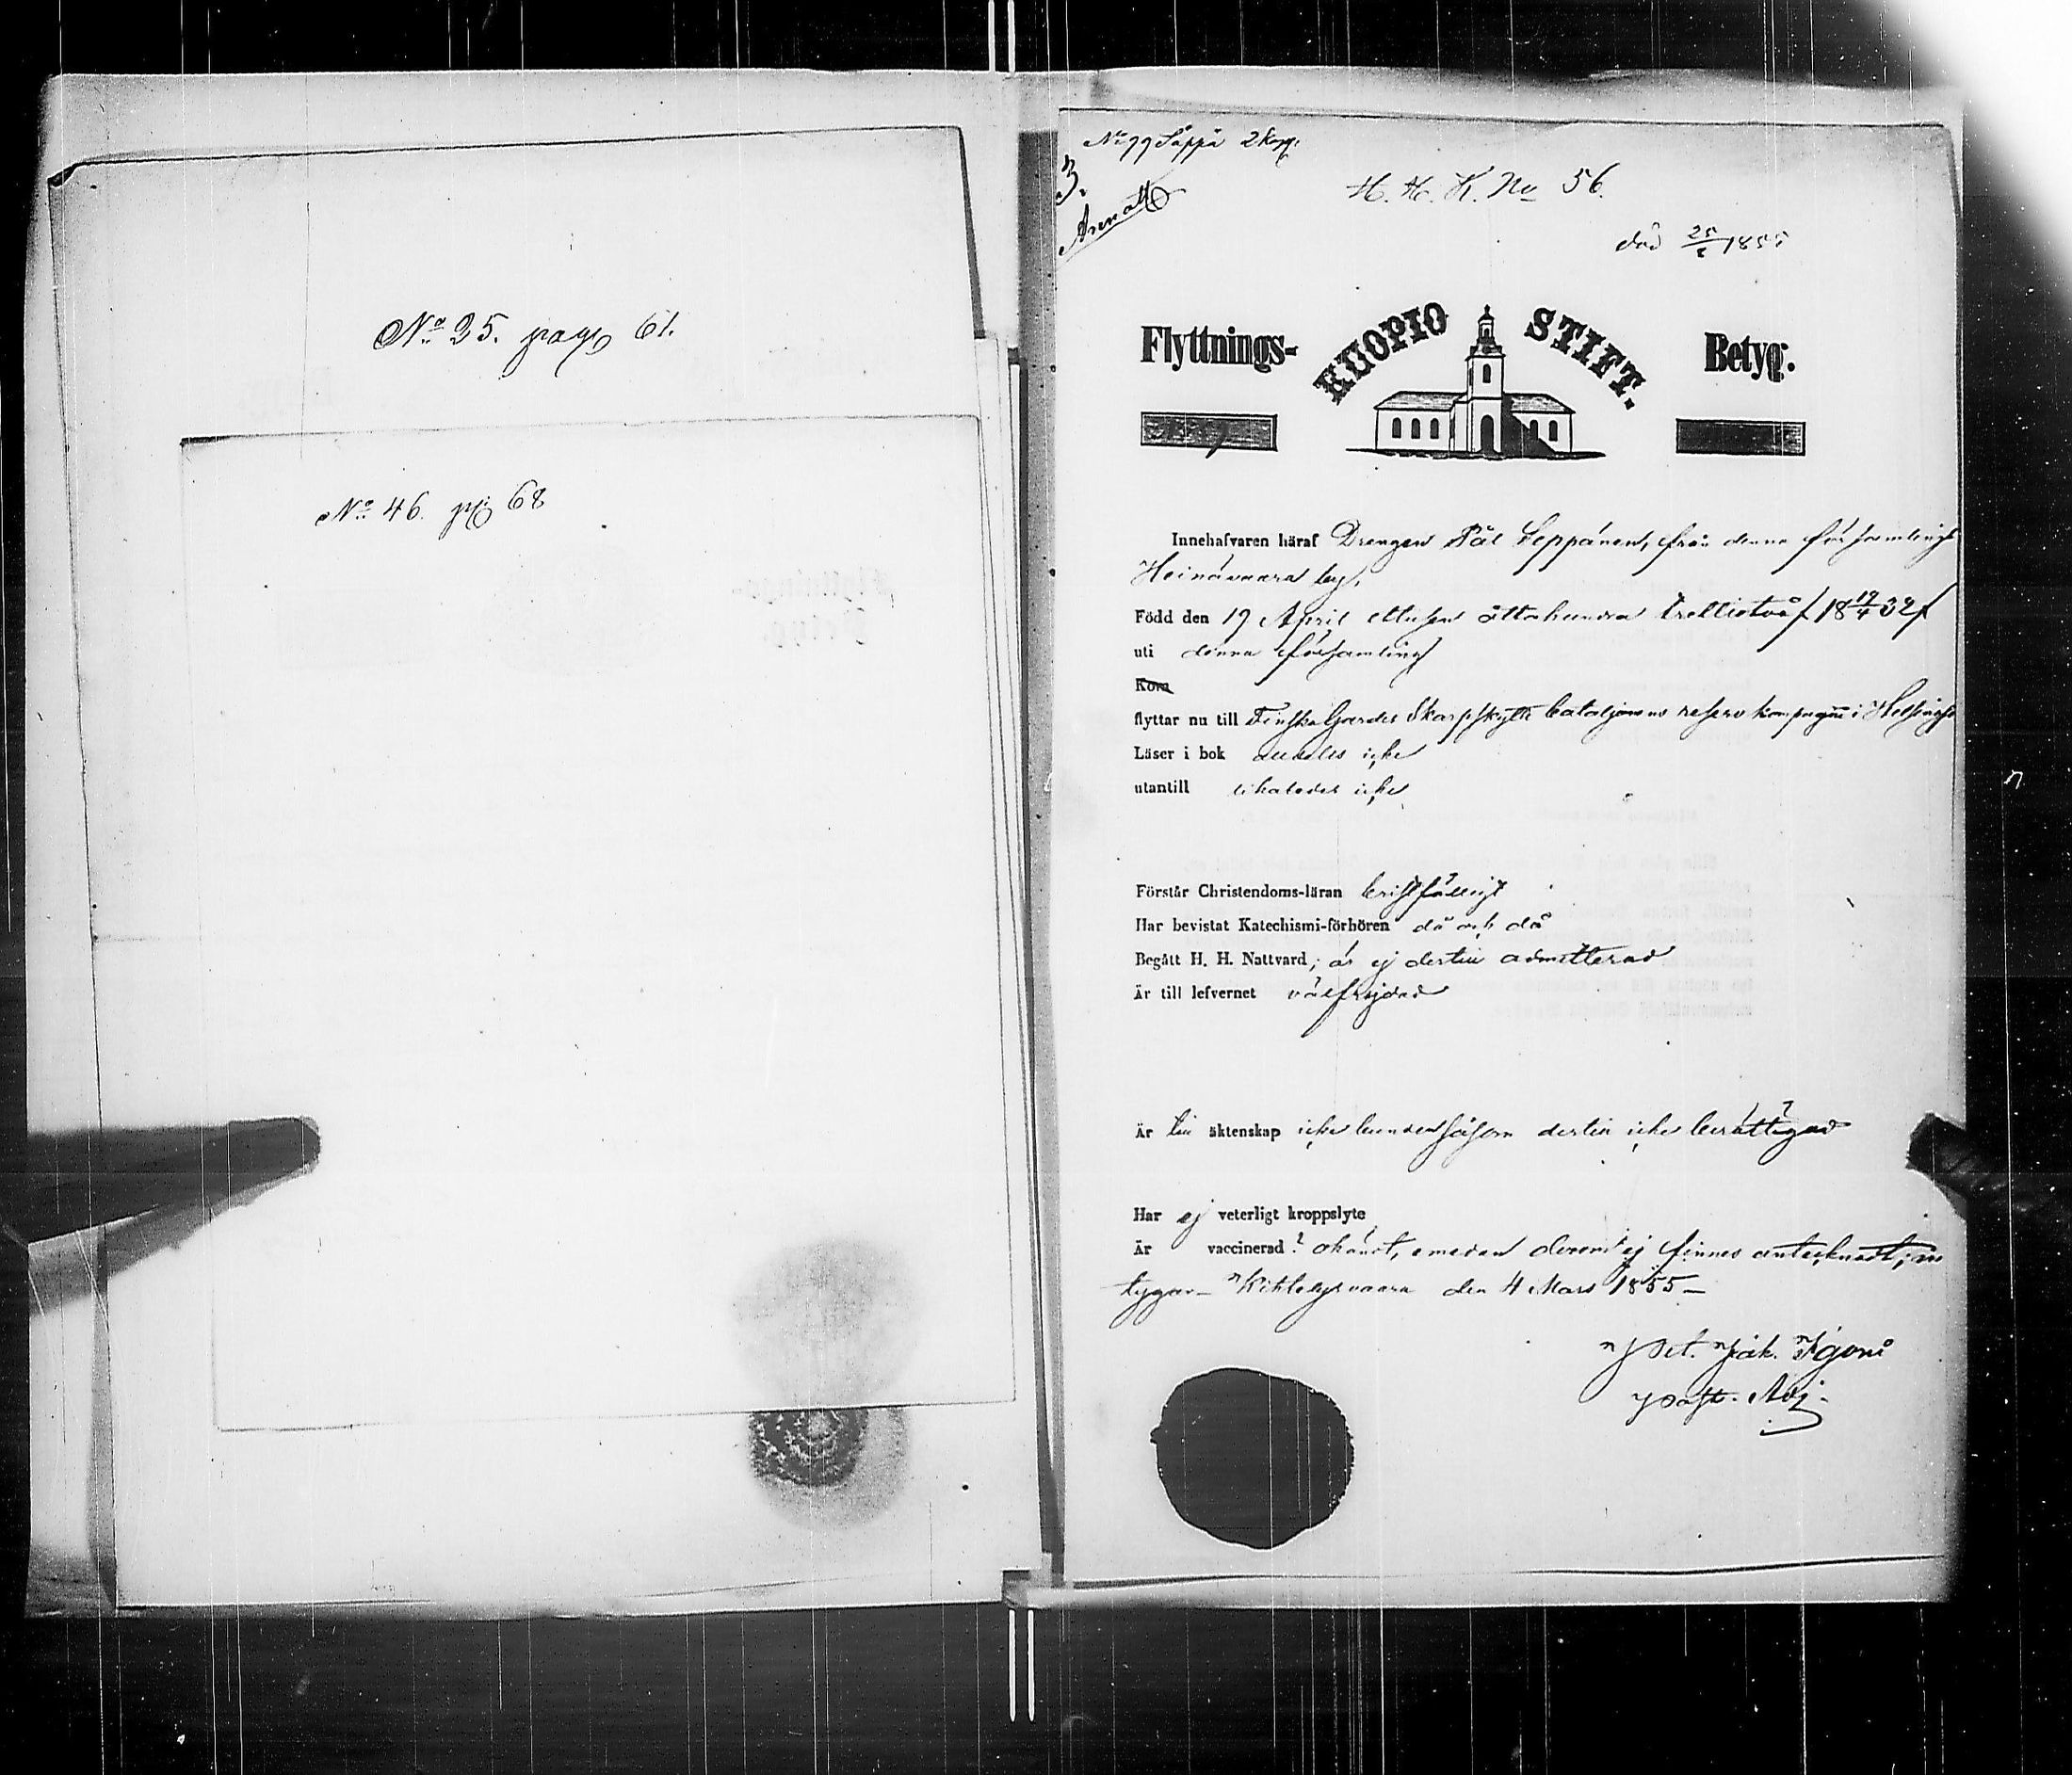 No 25. pag 61.
No 46. pg 68
No 99 Säppä 2 Komp.
3.
H. H. K. No 56.
död 25/ 1855
Flyttnings-
KUOPIO STIFT.
Betyg.
Innehafvaren häraf Drengen Pål Seppänen, från denna församlings
Heinävaara by,
Född den 19 April ettusen åttahundra trettiotvå / 18 19/4 32 /
uti denna församling
Kom
flyttar nu till Finska Gardes Skarpskytte bataljonens reserv kompagnie i Helsingfo
Läser i bok alldeles icke
utantill likaledes icke
Förstår Christendoms-läran bristfälligt
Har bevistat Katechismi-förhören då och då
Begått H. H. Nattvard; är ej dertill admitterad
Är till lefvernet välfrejdad
Är till äktenskap icke bunden såsom dertill icke berättigad
Har ej veterligt kroppslyte
Är vaccinerad? okändt, emedan derom ej finnes antecknadt;
tygar Kihtelysvaara den 4 Mars 1855
Pet. Jak. Igoni
Past. Adj.